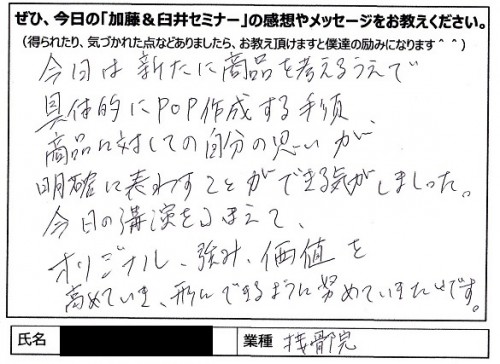 ぜひ、今日の「加藤＆臼井セミナー」の感想やメッセージをお教えください。
(得られたり、気づかれた点などありましたら、お教え頂けますと僕達の励みになります＾＾)
今日は新たに商品を考えるうえで
具体的にPOP作成する手順
商品に対しての自分の思いが、
明確に表わすことができる気がしました。
今日の講演をふまえて、
オリジナル、強み、価値を
高めていき、形にできるように努めていきたいです。
氏名
業種 接骨院